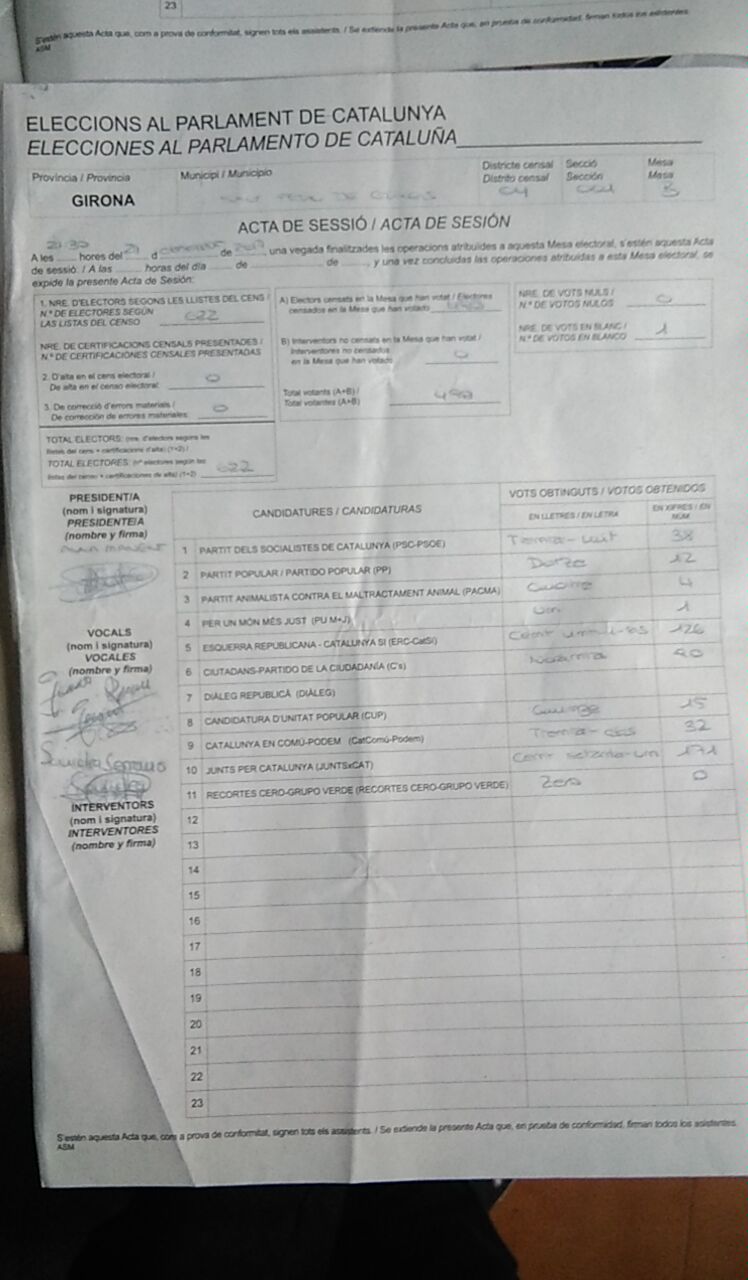 23
S'estén aquesta Acta que, com a prova de conformitat, signen tots els assistents. / Se extiende la presente Acta que, en prueba de conformidad, firman todos los asistentes.
ASM
ELECCIONS AL PARLAMENT DE CATALUNYA
ELECCIONES AL PARLAMENTO DE CATALUÑA
Provincia / Provincia Municipi / Municipio Districte censal Secció Mesa
Distrito censal Sección Mesa
GIRONA DE B
ACTA DE SESSIÓ / ACTA DE SESIÓN
A les hores del 21 d de 2017, una vegada finalitzades les operacions atribuïdes a aquesta Mesa electoral, s'estén aquesta Acta
de sessió. / A las horas del día de de , y una vez concluidas las operaciones atribuidas a esta Mesa electoral, se
expide la presente Acta de Sesión:
1. NRE. D'ELECTORS SEGONS LES LLISTES DEL CENS /
N.º DE ELECTORES SEGÚN
LAS LISTAS DEL CENSO 622
NRE. DE CERTIFICACIONS CENSALS PRESENTADES /
N.º DE CERTIFICACIONES CENSALES PRESENTADAS
2. D'alta en el cens electoral /
De alta en el censo electoral: 0
3. De correcció d'errors materials /
De corrección de errores materiales: 0
TOTAL ELECTORS: (nre. d'electors segons les
llistes del cens + certificacions d'alta) (1+2) /
TOTAL ELECTORES: (nº electores según las
listas del censo + certificaciones de alta) (1+2) 622
A) Electors censats en la Mesa que han votat / Electores
censados en la Mesa que han votado
B) Interventors no censats en la Mesa que han votat /
Interventores no censados
en la Mesa que han votado 0
Total votants (A+B) /
Total votantes (A+B)
NRE. DE VOTS NULS /
N.º DE VOTOS NULOS 0
NRE. DE VOTS EN BLANC /
N.º DE VOTOS EN BLANCO 1
PRESIDENT/A
(nom i signatura)
PRESIDENTE/A
(nombre y firma)
VOCALS
(nom i signatura)
VOCALES
(nombre y firma)
INTERVENTORS
(nom i signatura)
INTERVENTORES
(nombre y firma)
CANDIDATURES / CANDIDATURAS VOTS OBTINGUTS / VOTOS OBTENIDOS
EN LLETRES / EN LETRA EN XIFRES / EN NÚM.
1 PARTIT DELS SOCIALISTES DE CATALUNYA (PSC-PSOE) Trenta-vuit 38
2 PARTIT POPULAR / PARTIDO POPULAR (PP) Dotze 12
3 PARTIT ANIMALISTA CONTRA EL MALTRACTAMENT ANIMAL (PACMA) 4
4 PER UN MÓN MÉS JUST (PU M+J) un 1
5 ESQUERRA REPUBLICANA - CATALUNYA SÍ (ERC-CatSí) 126
6 CIUTADANS-PARTIDO DE LA CIUDADANÍA (C's) 90
7 DIÀLEG REPUBLICÀ (DIÀLEG)
8 CANDIDATURA D'UNITAT POPULAR (CUP) Quinze 15
9 CATALUNYA EN COMÚ-PODEM (CatComú-Podem) Trenta-dos 32
10 JUNTS PER CATALUNYA (JUNTSxCAT) Cent setanta-un 171
11 RECORTES CERO-GRUPO VERDE (RECORTES CERO-GRUPO VERDE) Zero 0
12
13
14
15
16
17
18
19
20
21
22
23
S'estén aquesta Acta que, com a prova de conformitat, signen tots els assistents. / Se extiende la presente Acta que, en prueba de conformidad, firman todos los asistentes.
ASM